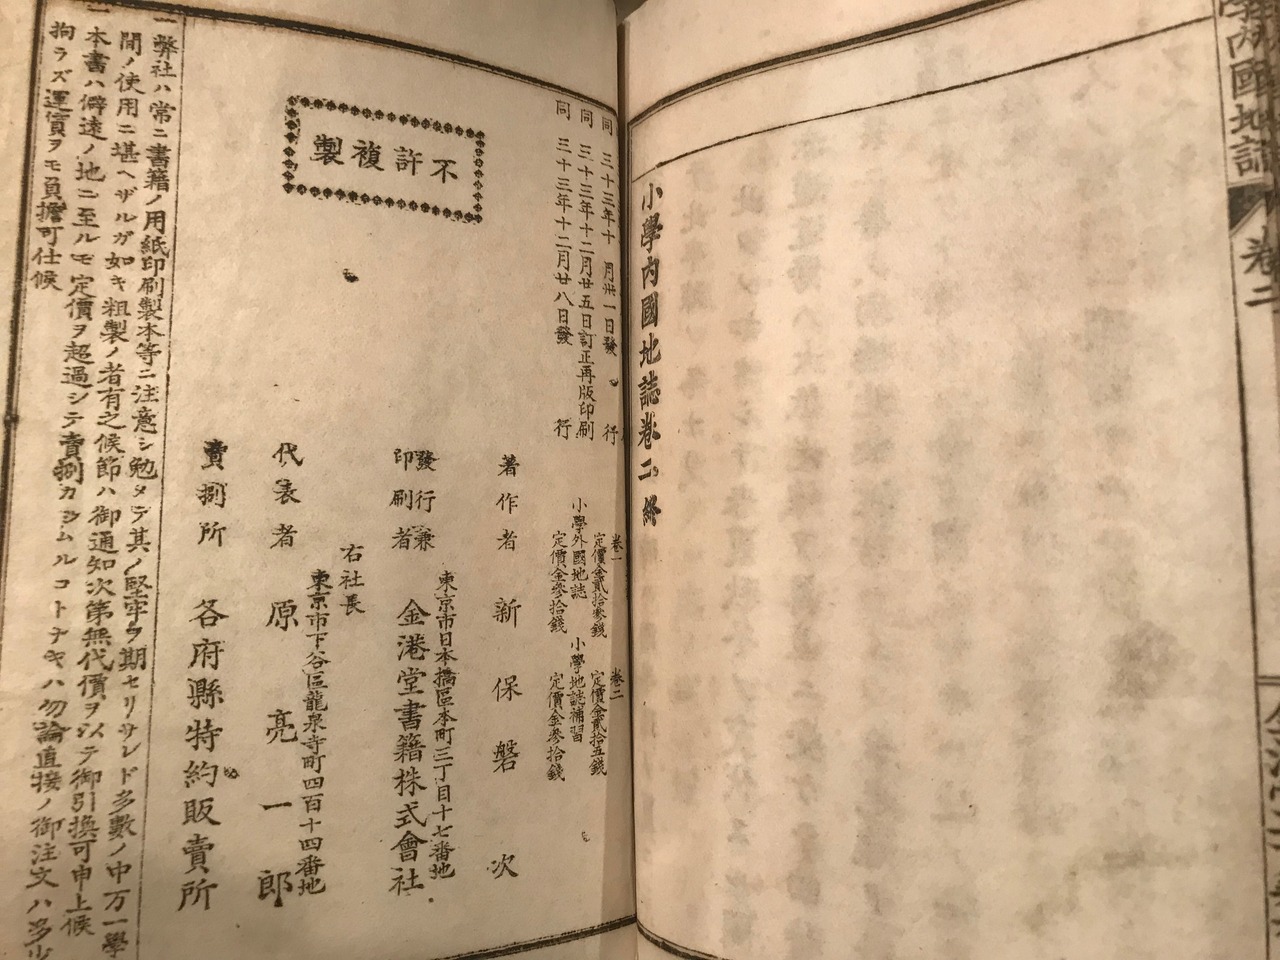 學內國地誌
卷二
小學內國地誌卷二終
同 三十三年十 月卅一日發 行
同 三十三年十二月廿五日訂正再版印刷
同 三十三年十二月廿八日發 行
不許複製
卷一 定價金貳拾參錢
卷二 定價金貳拾五錢
小學外國地誌 定價金參拾錢
小學地誌補習 定價金參拾錢
著作者 新保磐次
東京市日本橋區本町三丁目十七番地
發行兼印刷者 金港堂書籍株式會社
右社長
東京市下谷區龍泉寺町四百十四番地
代表者 原亮一郎
賣捌所 各府縣特約販賣所
一弊社ハ常ニ書籍ノ用紙印刷製本等ニ注意シ勉メテ其ノ堅牢ヲ期セリサレド多數ノ中万一學
間ノ使用ニ堪ヘザルガ如キ粗製ノ者有之候節ハ御通知次第無代價ヲ以テ御引換可申上候
一本書ハ僻遠ノ地ニ至ルモ定價ヲ超過シテ賣捌カシムルコトナキハ勿論直接ノ御注文ハ多少
拘ラズ運賃ヲモ負擔可仕候